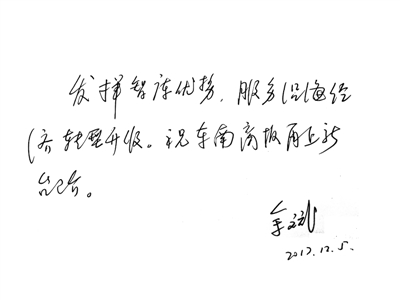 发挥智库优势，服务沿海经
济转型升级。祝东南商报再上新
台阶。
2017.12.5.